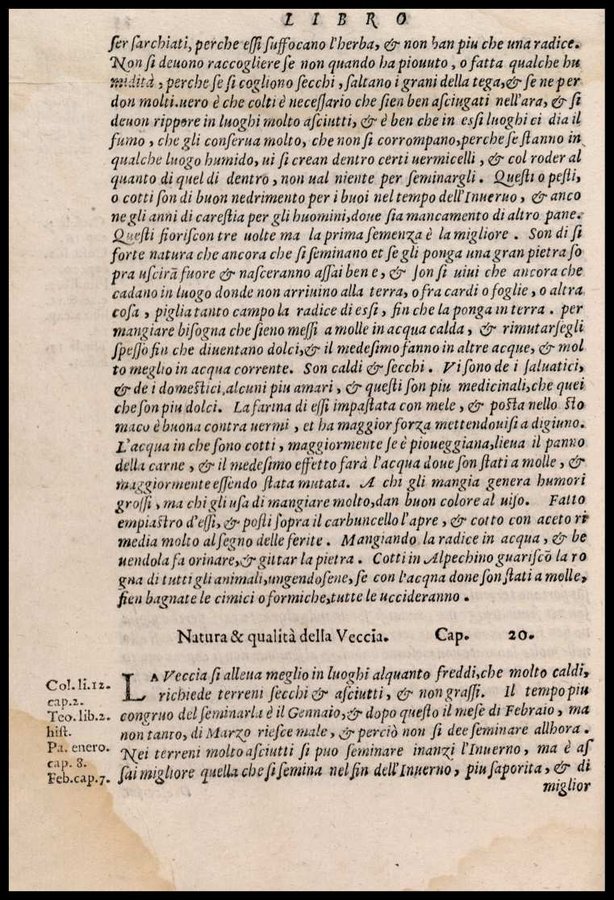 LIBRO
ſer ſarchiati, perche eſſi ſuffocano l'herba, & non han piu che una radice.
Non ſi deuono raccogliere ſe non quando ha piouuto, o fatta qualche hu
midità, perche ſe ſi cogliono ſecchi, ſaltano i grani della tega, & ſe ne per
don molti. uero è che colti è neceſſario che ſien ben aſciugati nell'ara, & ſi
deuon rippore in luoghi molto aſciutti, & è ben che in eſſi luoghi ci dia il
fumo, che gli conſerua molto, che non ſi corrompano, perche ſe ſtanno in
qualche luogo humido, ui ſi crean dentro certi uermicelli, & col roder al
quanto di quel di dentro, non ual niente per ſeminargli. Queſti o peſti,
o cotti ſon di buon nedrimento per i buoi nel tempo dell'Inueruo, & anco
ne gli anni di careſtia per gli huomini, doue ſia mancamento di altro pane.
Queſti fioriſcon tre uolte ma la prima ſemenza è la migliore. Son di ſi
forte natura che ancora che ſi ſeminano et ſe gli ponga una gran pietra ſo
pra uſcirā fuore & naſceranno aſſai ben e, & ſon ſi uiui che ancora che
cadano in luogo donde non arriuino alla terra, o fra cardi o foglie, o altra
coſa, piglia tanto campo la radice di eſſi, fin che la ponga in terra. per
mangiare biſogna che ſieno meſſi a molle in acqua calda, & rimutarſegli
ſpeſſo fin che diuentano dolci, & il medeſimo fanno in altre acque, & mol
to meglio in acqua corrente. Son caldi & ſecchi. Vi ſono de i ſaluatici,
& de i domeſtici, alcuni piu amari, & queſti ſon piu medicinali, che quei
che ſon piu dolci. La farina di eſſi impaſtata con mele, & poſta nello ſto
maco è buona contra uermi, et ha maggior forza mettendouiſi a digiuno.
L'acqua in che ſono cotti, maggiormente ſe è pioueggiana, lieua il panno
della carne, & il medeſimo effetto farà l'acqua doue ſon ſtati a molle, &
maggiormente eſſendo ſtata mutata. A chi gli mangia genera humori
groſſi, ma chi gli uſa di mangiare molto, dan buon colore al uiſo. Fatto
empiaſtro d'eſſi, & poſti ſopra il carbuncello l'apre, & cotto con aceto ri
media molto al ſegno delle ferite. Mangiando la radice in acqua, & be
uendola fa orinare, & gittar la pietra. Cotti in Alpechino guariſcō la ro
gna di tutti gli animali, ungendoſene, ſe con l'acqna done ſon ſtati a molle,
ſien bagnate le cimici o formiche, tutte le uccideranno.
Natura & qualità della Veccia. Cap. 20.
LA Veccia ſi alleua meglio in luoghi alquanto freddi, che molto caldi,
richiede terreni ſecchi & aſciutti, & non graſſi. Il tempo piu
congruo del ſeminarla è il Gennaio, & dopo queſto il meſe di Febraio, ma
non tanto, di Marzo rieſce male, & perciò non ſi dee ſeminare allhora.
Nei terreni molto aſciutti ſi puo ſeminare inanzi l'Inuerno, ma è aſ
ſai migliore quella che ſi ſemina nel fin dell'Inuerno, piu ſaporita, & di
miglior
Col. li. 12.
cap. 2.
Teo. lib. 2.
hiſt.
Pa. enero.
cap. 8.
Feb. cap. 7.